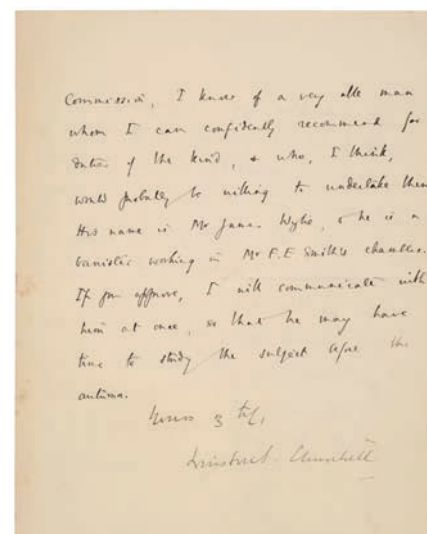 Commission, I know of a very able man
whom I can confidently recommend for
duties of the kind, & who, I think,
would probably be willing to undertake them
His name is Mr James Wylie, & he is a
barrister working in Mr F.E. Smith's chambers.
If you approve, I will communicate with
him at once, so that he may have
time to study the subject before the
autumn.
Yours
Winston S. Churchill